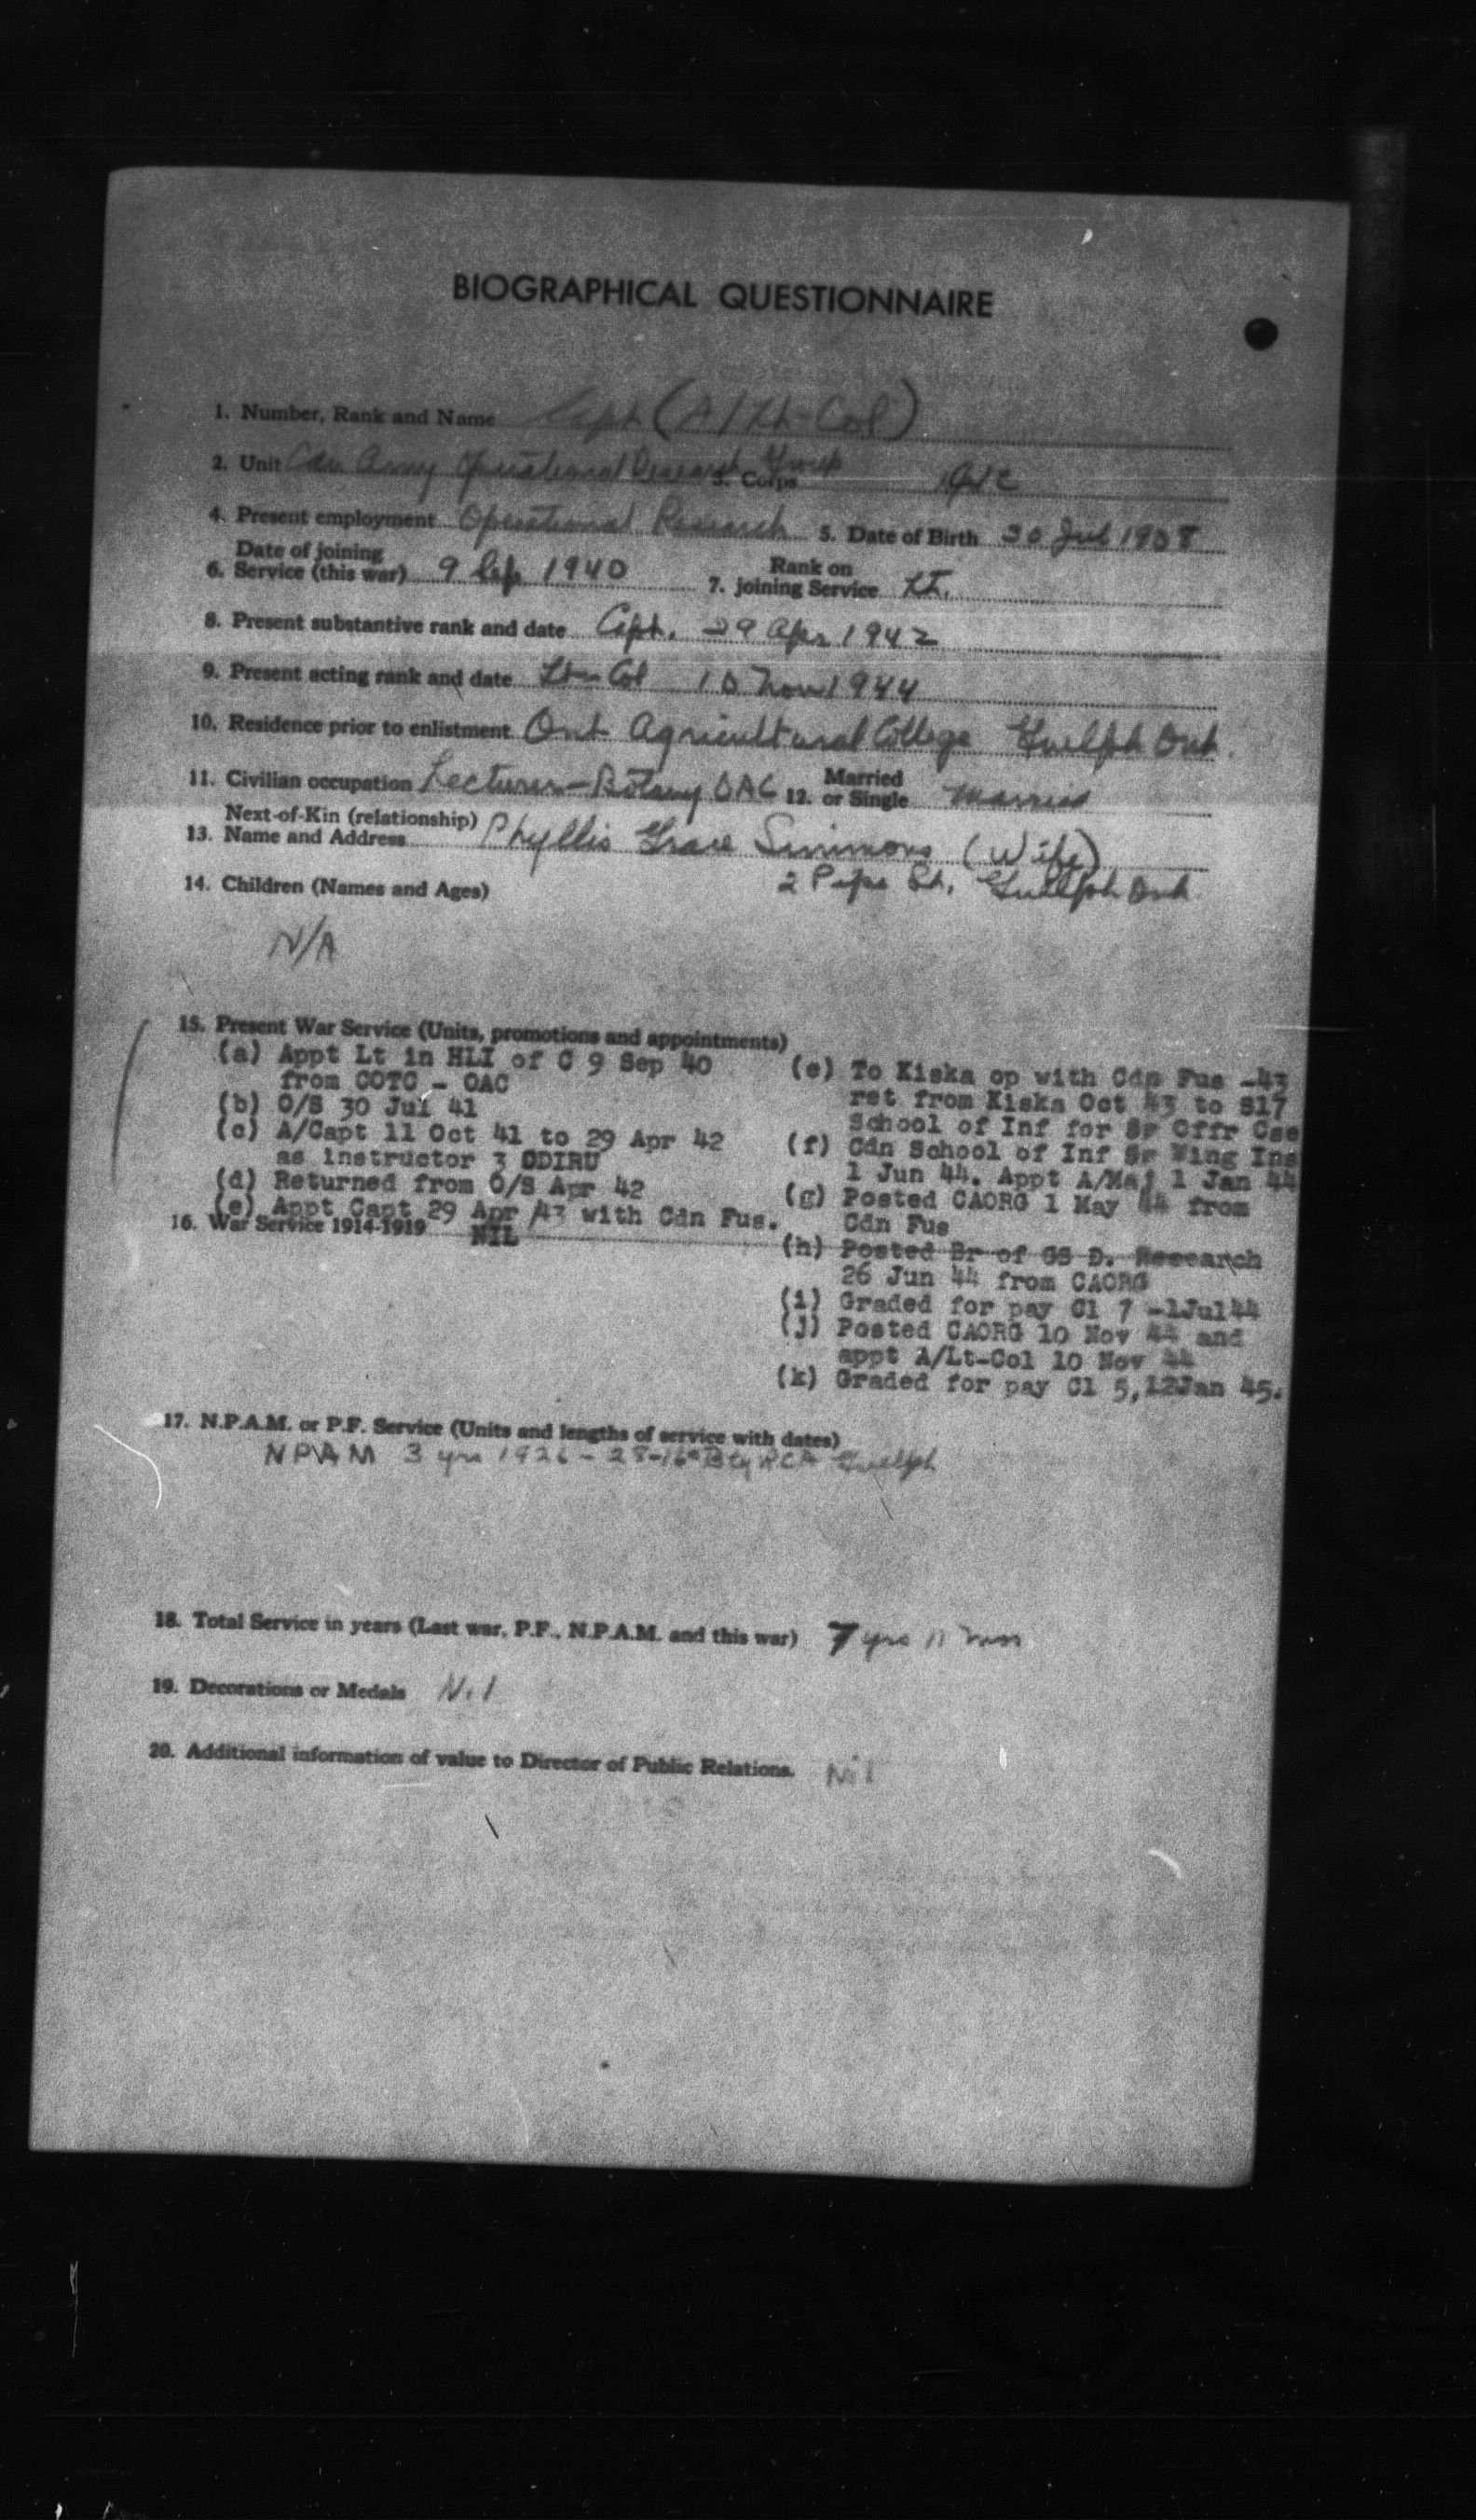 BIOGRAPHICAL QUESTIONNAIRE
1. Number, Rank and Name Capt (A/Lt-Col)
2. Unit Cdn Army Operational Research Group 3. Corps
4. Present employment Operational Research 5. Date of Birth 30 Jul 1908
6. Date of joining Service (this war) 9 Sep 1940 7. Rank on joining Service Lt.
8. Present substantive rank and date Capt. 29 Apr 1942
9. Present acting rank and date Lt-Col 10 Nov 1944
10. Residence prior to enlistment Ont Agricultural College Guelph Ont.
11. Civilian occupation Lecturer - Botany OAC 12. Married or Single Married
13. Next-of-Kin (relationship) Name and Address Phyllis Grace Simmons (Wife)
2 St. Guelph Ont.
14. Children (Names and Ages)
N/A
15. Present War Service (Units, promotions and appointments)
(a) Appt Lt in HLI of C 9 Sep 40
from COTC - OAC
(b) O/S 30 Jul 41
(c) A/Capt 11 Oct 41 to 29 Apr 42
as instructor 3 CDIRU
(d) Returned from O/S Apr 42
(e) Appt Capt 29 Apr 43 with Cdn Fus.
16. War Service 1914-1919 NIL
(e) To Kiska op with Cdn Fus -43
ret from Kiska Oct 43 to S17
School of Inf for Sr Offr Cse
(f) Cdn School of Inf Sr Wing Ins
1 Jun 44. Appt A/Maj 1 Jan 44
(g) Posted CAORG 1 May 44 from
Cdn Fus
(h) Posted Br of GS D. Research
26 Jun 44 from CAORG
(i) Graded for pay Cl 7 -1Jul44
(j) Posted CAORG 10 Nov 44 and
appt A/Lt-Col 10 Nov 44
(k) Graded for pay Cl 5,12Jan 45.
17. N.P.A.M. or P.F. Service (Units and lengths of service with dates)
NPAM 3 yrs 1926 - 28 - 16th Bty RCA Guelph
18. Total Service in years (Last war, P.F., N.P.A.M. and this war) 7 yrs 11 mos
19. Decorations or Medals Nil
20. Additional information of value to Director of Public Relations. Nil